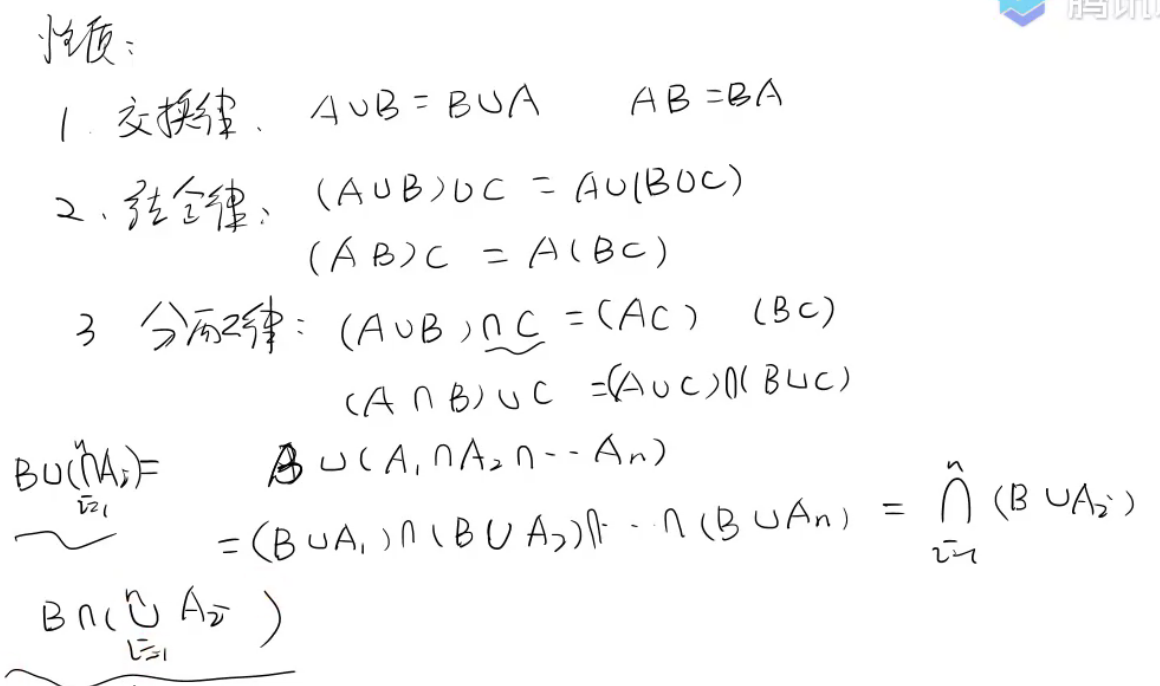 腾讯
性质:
1. 交换律. A∪B = B∪A AB = BA
2. 结合律: (A∪B)∪C = A∪(B∪C)
(AB)C = A(BC)
3 分配律: (A∪B)∩C = (AC) (BC)
(A∩B)∪C = (A∪C)∩(B∪C)
B∪(⋂ⁿᵢ₌₁Aᵢ) = B∪(A₁∩A₂∩--Aₙ)
= (B∪A₁)∩(B∪A₂)∩--∩(B∪Aₙ) = ⋂ⁿᵢ₌₁(B∪Aᵢ)
B∩(⋃ⁿᵢ₌₁ Aᵢ)